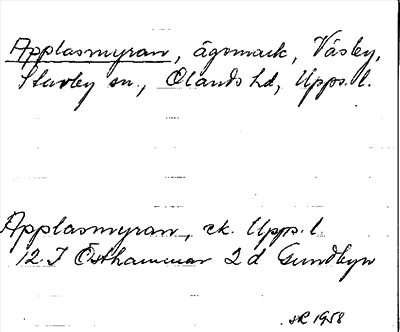 Applasmyran, ägomark, Väsby,
Stavby sn., Olands hd, Upps. l.
Applasmyran, ek. Upps. l.
12. I Östhammar 2 d Sundbyn
1958